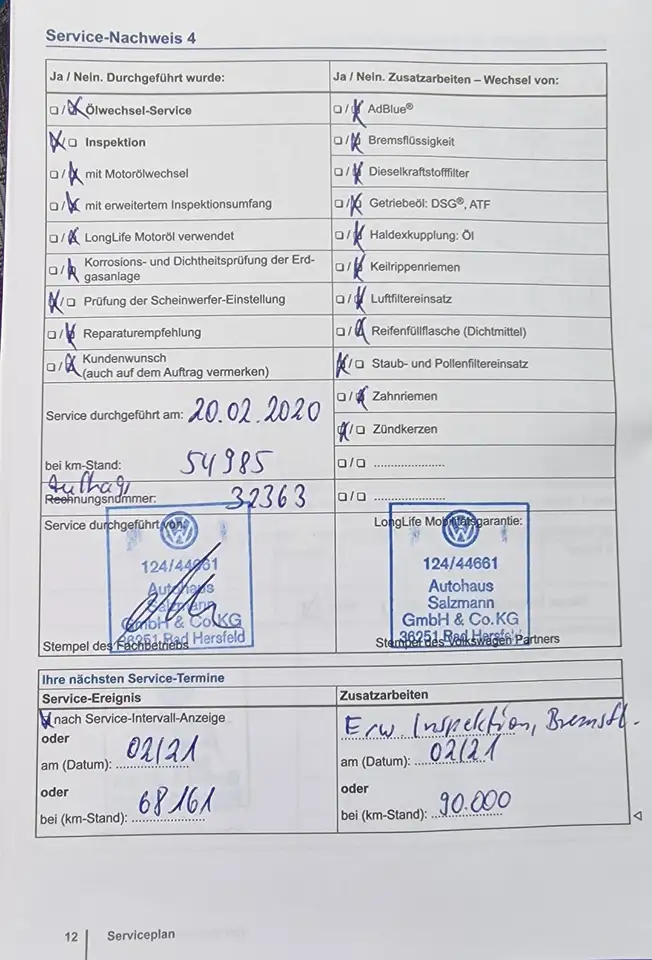 Service-Nachweis 4
Ja / Nein. Durchgeführt wurde:
Ölwechsel-Service
Inspektion
mit Motorölwechsel
mit erweitertem Inspektionsumfang
LongLife Motoröl verwendet
Korrosions- und Dichtheitsprüfung der Erd-
gasanlage
Prüfung der Scheinwerfer-Einstellung
Reparaturempfehlung
Kundenwunsch
(auch auf dem Auftrag vermerken)
Service durchgeführt am: 20.02.2020
bei km-Stand: 54985
Auftrag
Rechnungsnummer: 32363
Ja / Nein. Zusatzarbeiten – Wechsel von:
AdBlue®
Bremsflüssigkeit
Dieselkraftstofffilter
Getriebeöl: DSG®, ATF
Haldexkupplung: Öl
Keilrippenriemen
Luftfiltereinsatz
Reifenfüllflasche (Dichtmittel)
Staub- und Pollenfiltereinsatz
Zahnriemen
Zündkerzen
Service durchgeführt von:
124/44661
Autohaus
Salzmann
GmbH & Co.KG
36251 Bad Hersfeld
Stempel des Fachbetriebs
LongLife Mobilitätsgarantie:
124/44661
Autohaus
Salzmann
GmbH & Co.KG
36251 Bad Hersfeld
Stempel des Volkswagen Partners
Ihre nächsten Service-Termine
Service-Ereignis
nach Service-Intervall-Anzeige
oder
am (Datum): 02/21
oder
bei (km-Stand): 68161
Zusatzarbeiten
Erw. Inspektion, Bremsfl.
am (Datum): 02/21
oder
bei (km-Stand): 90.000
12 Serviceplan